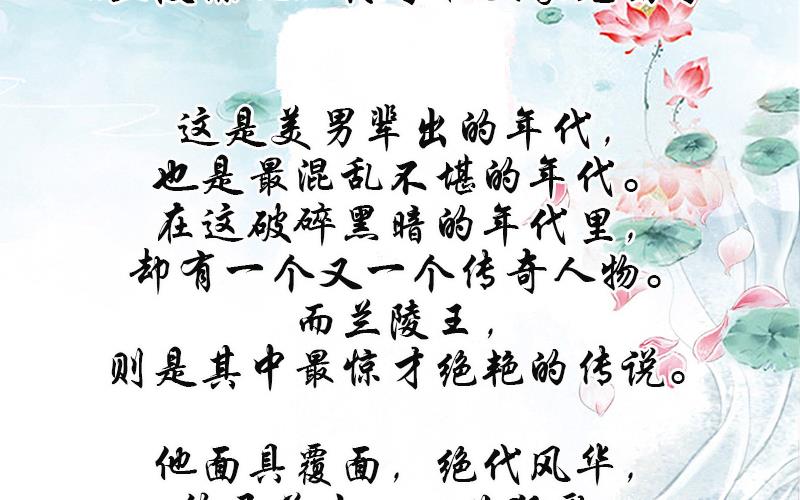 这是美男辈出的年代，
也是最混乱不堪的年代。
在这破碎黑暗的年代里，
却有一个又一个传奇人物。
而兰陵王，
则是其中最惊才绝艳的传说。
他面具覆面，绝代风华，